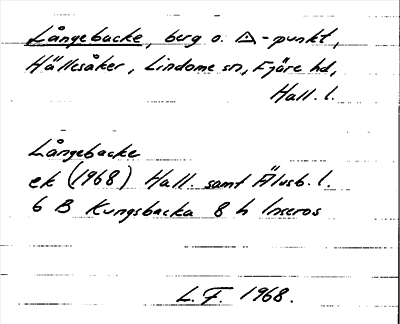 Långebacke, berg o. △-punkt,
Hällesåker, Lindome sn, Fjäre hd,
Hall. l.
Långebacke
ek (1968) Hall. samt Älvsb. l.
6 B Kungsbacka 8 h Inseros
L.F. 1968.